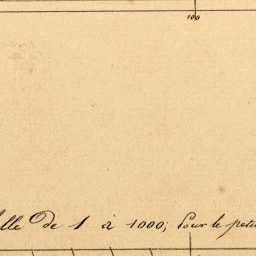 100
lle de 1 à 1000; Pour le petit